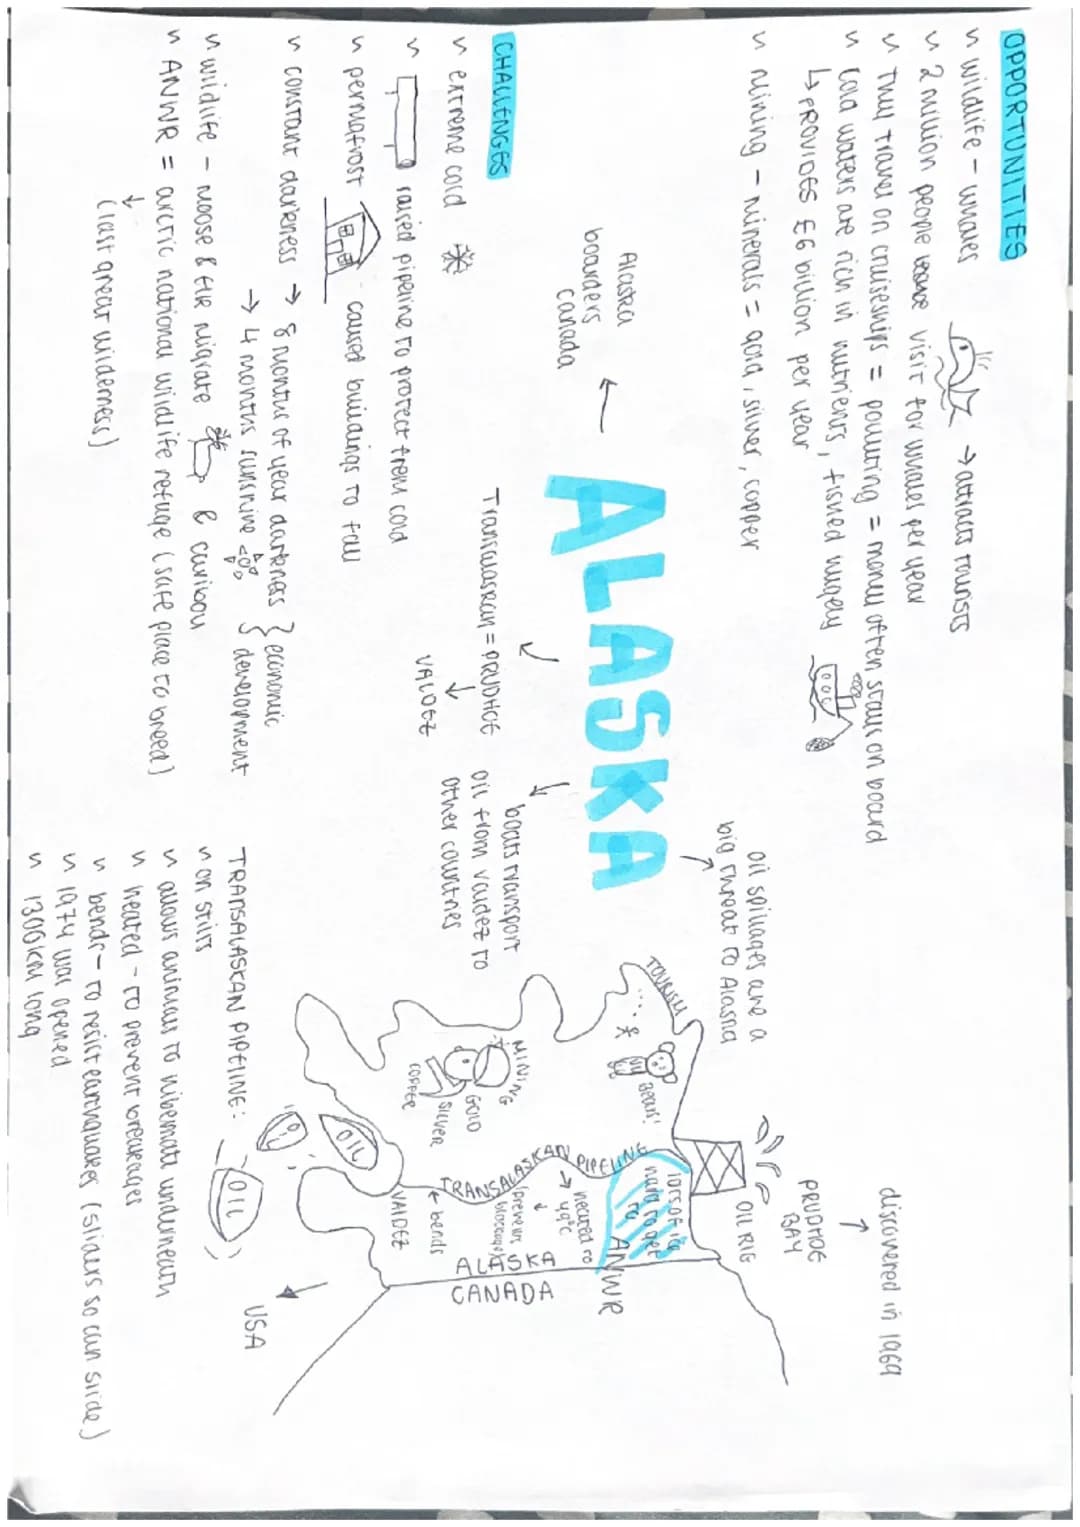 OPPORTUNITIES
wildlife - whales → attracts tourists
2 million people visit for whales per year
They travel on cruiseships = polluting = money often stays on board
cold waters are rich in nutrients, fished hugely
↳ PROVIDES £6 billion per year
Mining - minerals = gold, silver, copper
Alaska
boarders
Canada
ALASKA
CHALLENGES
extreme cold
raised pipeline to protect from cold
permafrost caused buildings to fall
constant darkness → 8 months of year darkness } economic
→ 4 months sunshine } development
wildlife - Moose & Elk Migrate & caribou
ANWR = arctic national wildlife refuge (safe place to breed)
↓
(last great wilderness)
Transalaskan = PRUDHOE
↓
VALDEZ
boats transport
oil from valdez to
other countries
oil spillages are a
big threat to Alaska
discovered in 1969
PRUDHOE
BAY
OIL RIG
TOURISM
Bears!
lots of
hard to get
to
ANWR
MINING
GOLD
SILVER
COPPER
TRANSALASKAN PIPELINE
heated to
49°C
(prevents
blockage)
← bends
VALDEZ
ALASKA
CANADA
OIL
OIL
USA
TRANSALASKAN PIPELINE:
on stilts
allows animals to hibernate underneath
heated - to prevent breakages
bends - to resist earthquakes (sliders so can slide)
1974 was opened
1300km long